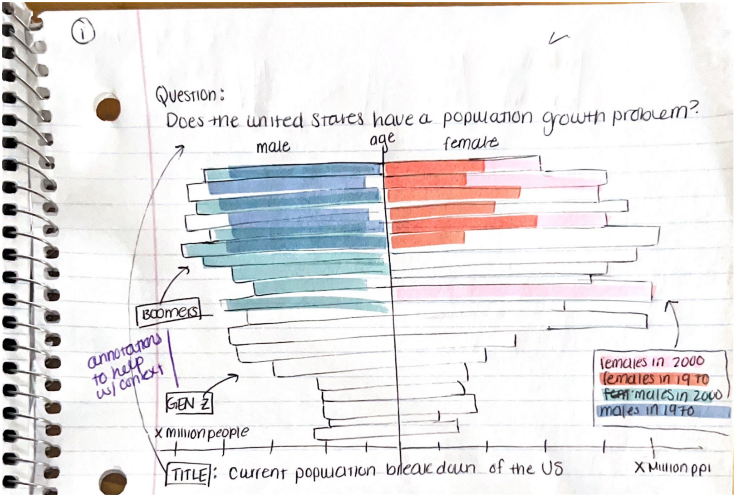 1
Question:
Does the united states have a population growth problem?
male age female
Boomers
annotations
to help
w/ context
GEN Z
females in 2000
females in 1970
males in 2000
males in 1970
X million people
X Million ppl
TITLE: Current population breakdown of the US